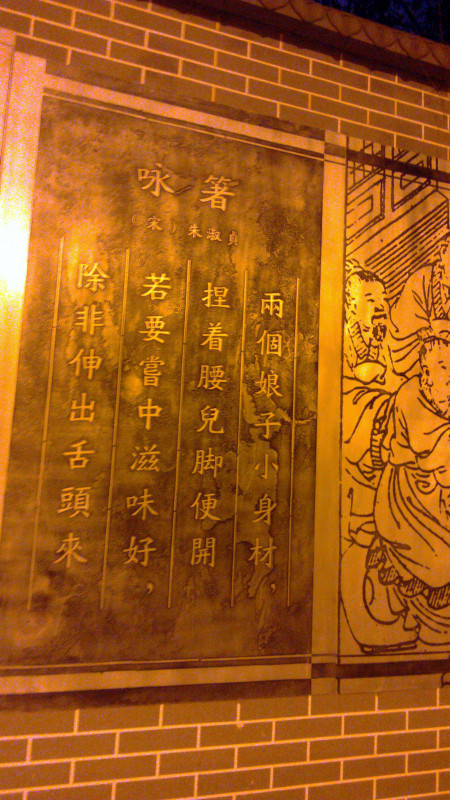 咏箸
（宋）朱淑貞
兩個娘子小身材，
捏着腰兒脚便開
若要嘗中滋味好，
除非伸出舌頭來